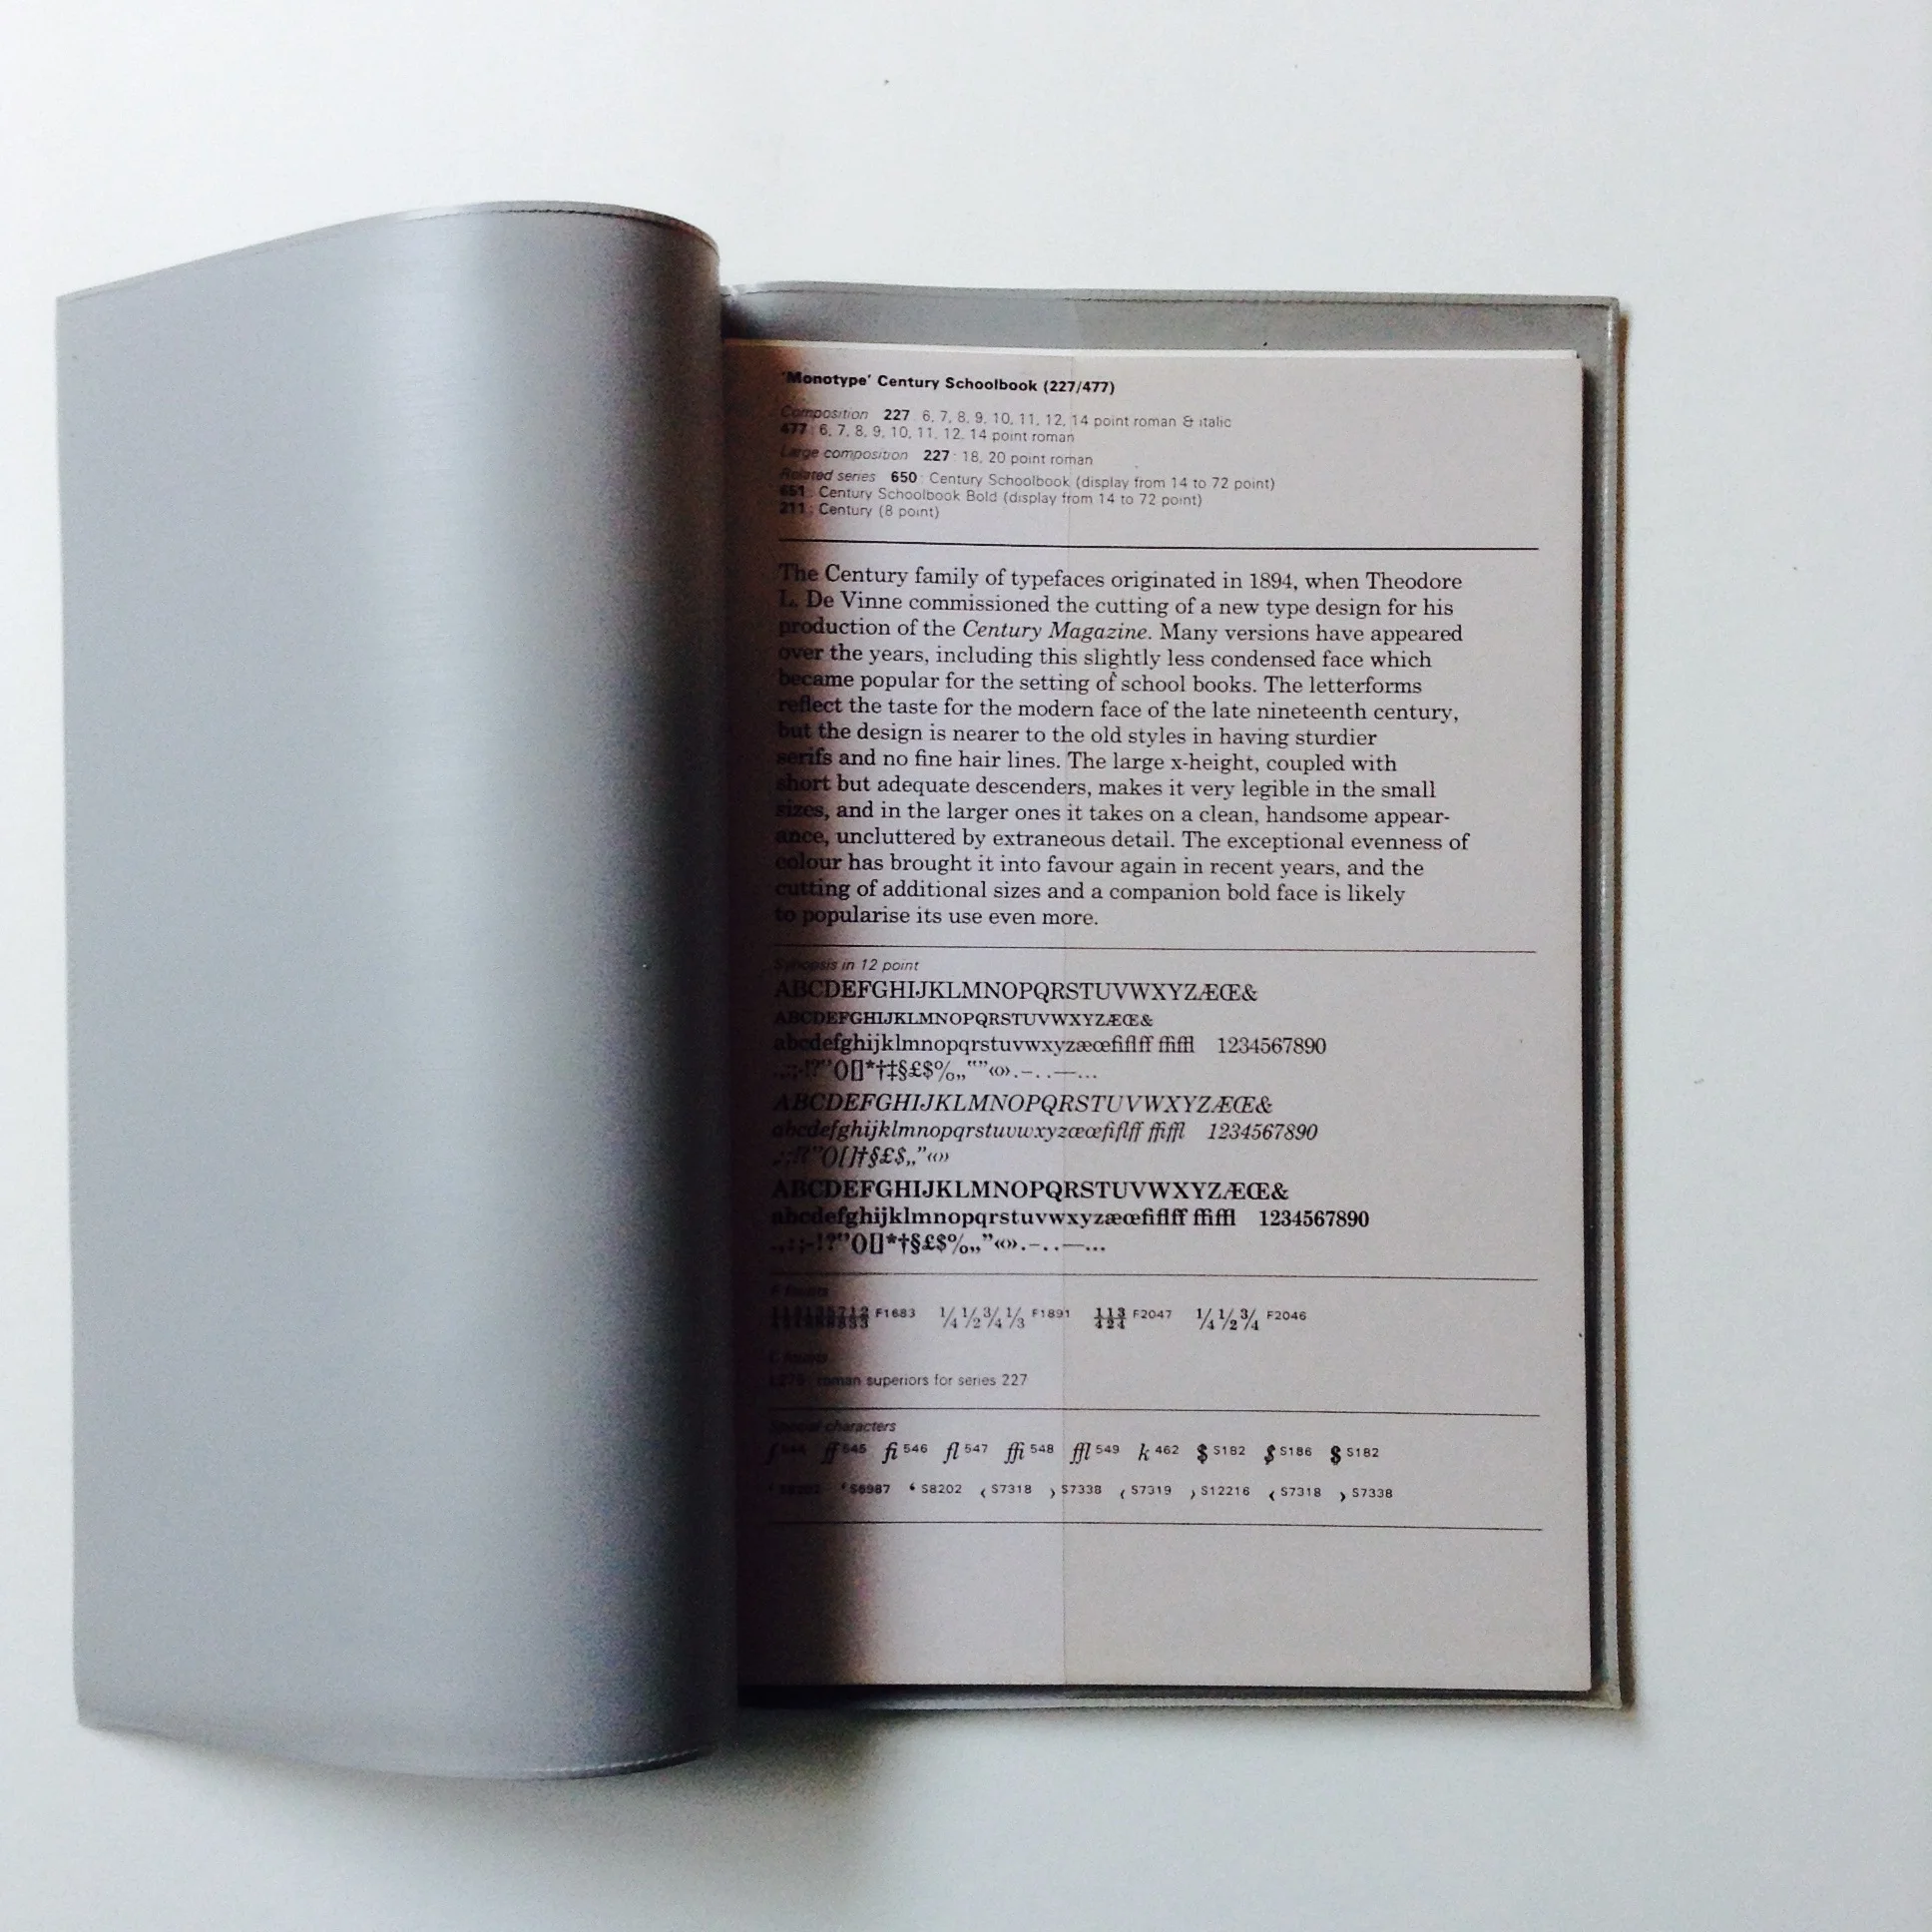 'Monotype' Century Schoolbook (227/477)
Composition 227 : 6, 7, 8, 9, 10, 11, 12, 14 point roman & italic
477 : 6, 7, 8, 9, 10, 11, 12, 14 point roman
Large composition 227 : 18, 20 point roman
Related series 650 : Century Schoolbook (display from 14 to 72 point)
651 : Century Schoolbook Bold (display from 14 to 72 point)
211 : Century (8 point)
The Century family of typefaces originated in 1894, when Theodore
L. De Vinne commissioned the cutting of a new type design for his
production of the Century Magazine. Many versions have appeared
over the years, including this slightly less condensed face which
became popular for the setting of school books. The letterforms
reflect the taste for the modern face of the late nineteenth century,
but the design is nearer to the old styles in having sturdier
serifs and no fine hair lines. The large x-height, coupled with
short but adequate descenders, makes it very legible in the small
sizes, and in the larger ones it takes on a clean, handsome appear-
ance, uncluttered by extraneous detail. The exceptional evenness of
colour has brought it into favour again in recent years, and the
cutting of additional sizes and a companion bold face is likely
to popularise its use even more.
Synopsis in 12 point
ABCDEFGHIJKLMNOPQRSTUVWXYZÆŒ&
ABCDEFGHIJKLMNOPQRSTUVWXYZÆŒ&
abcdefghijklmnopqrstuvwxyzæœfiflff ffiffl 1234567890
.,:;-!?''()[]*†‡§£$%„“”‹‹()››.–..—...
ABCDEFGHIJKLMNOPQRSTUVWXYZÆŒ&
abcdefghijklmnopqrstuvwxyzæœfiflff ffiffl 1234567890
.,:;!?''()[]†§£$„”‹‹()››
ABCDEFGHIJKLMNOPQRSTUVWXYZÆŒ&
abcdefghijklmnopqrstuvwxyzæœfiflff ffiffl 1234567890
.,:;-!?''()[]*†§£$%„”‹‹()››.–..—...
F founts
F1683 1/4 1/2 3/4 1/3 F1891 1/4 1/2 3/4 F2047 1/4 1/2 3/4 F2046
roman superiors for series 227
Special characters
f ff 545 fi 546 fl 547 ffi 548 ffl 549 k 462 $ S182 $ S186 $ S182
‘ S6987 ‘ S8202 ‹ S7318 › S7338 ‹ S7319 › S12216 ‹ S7318 › S7338